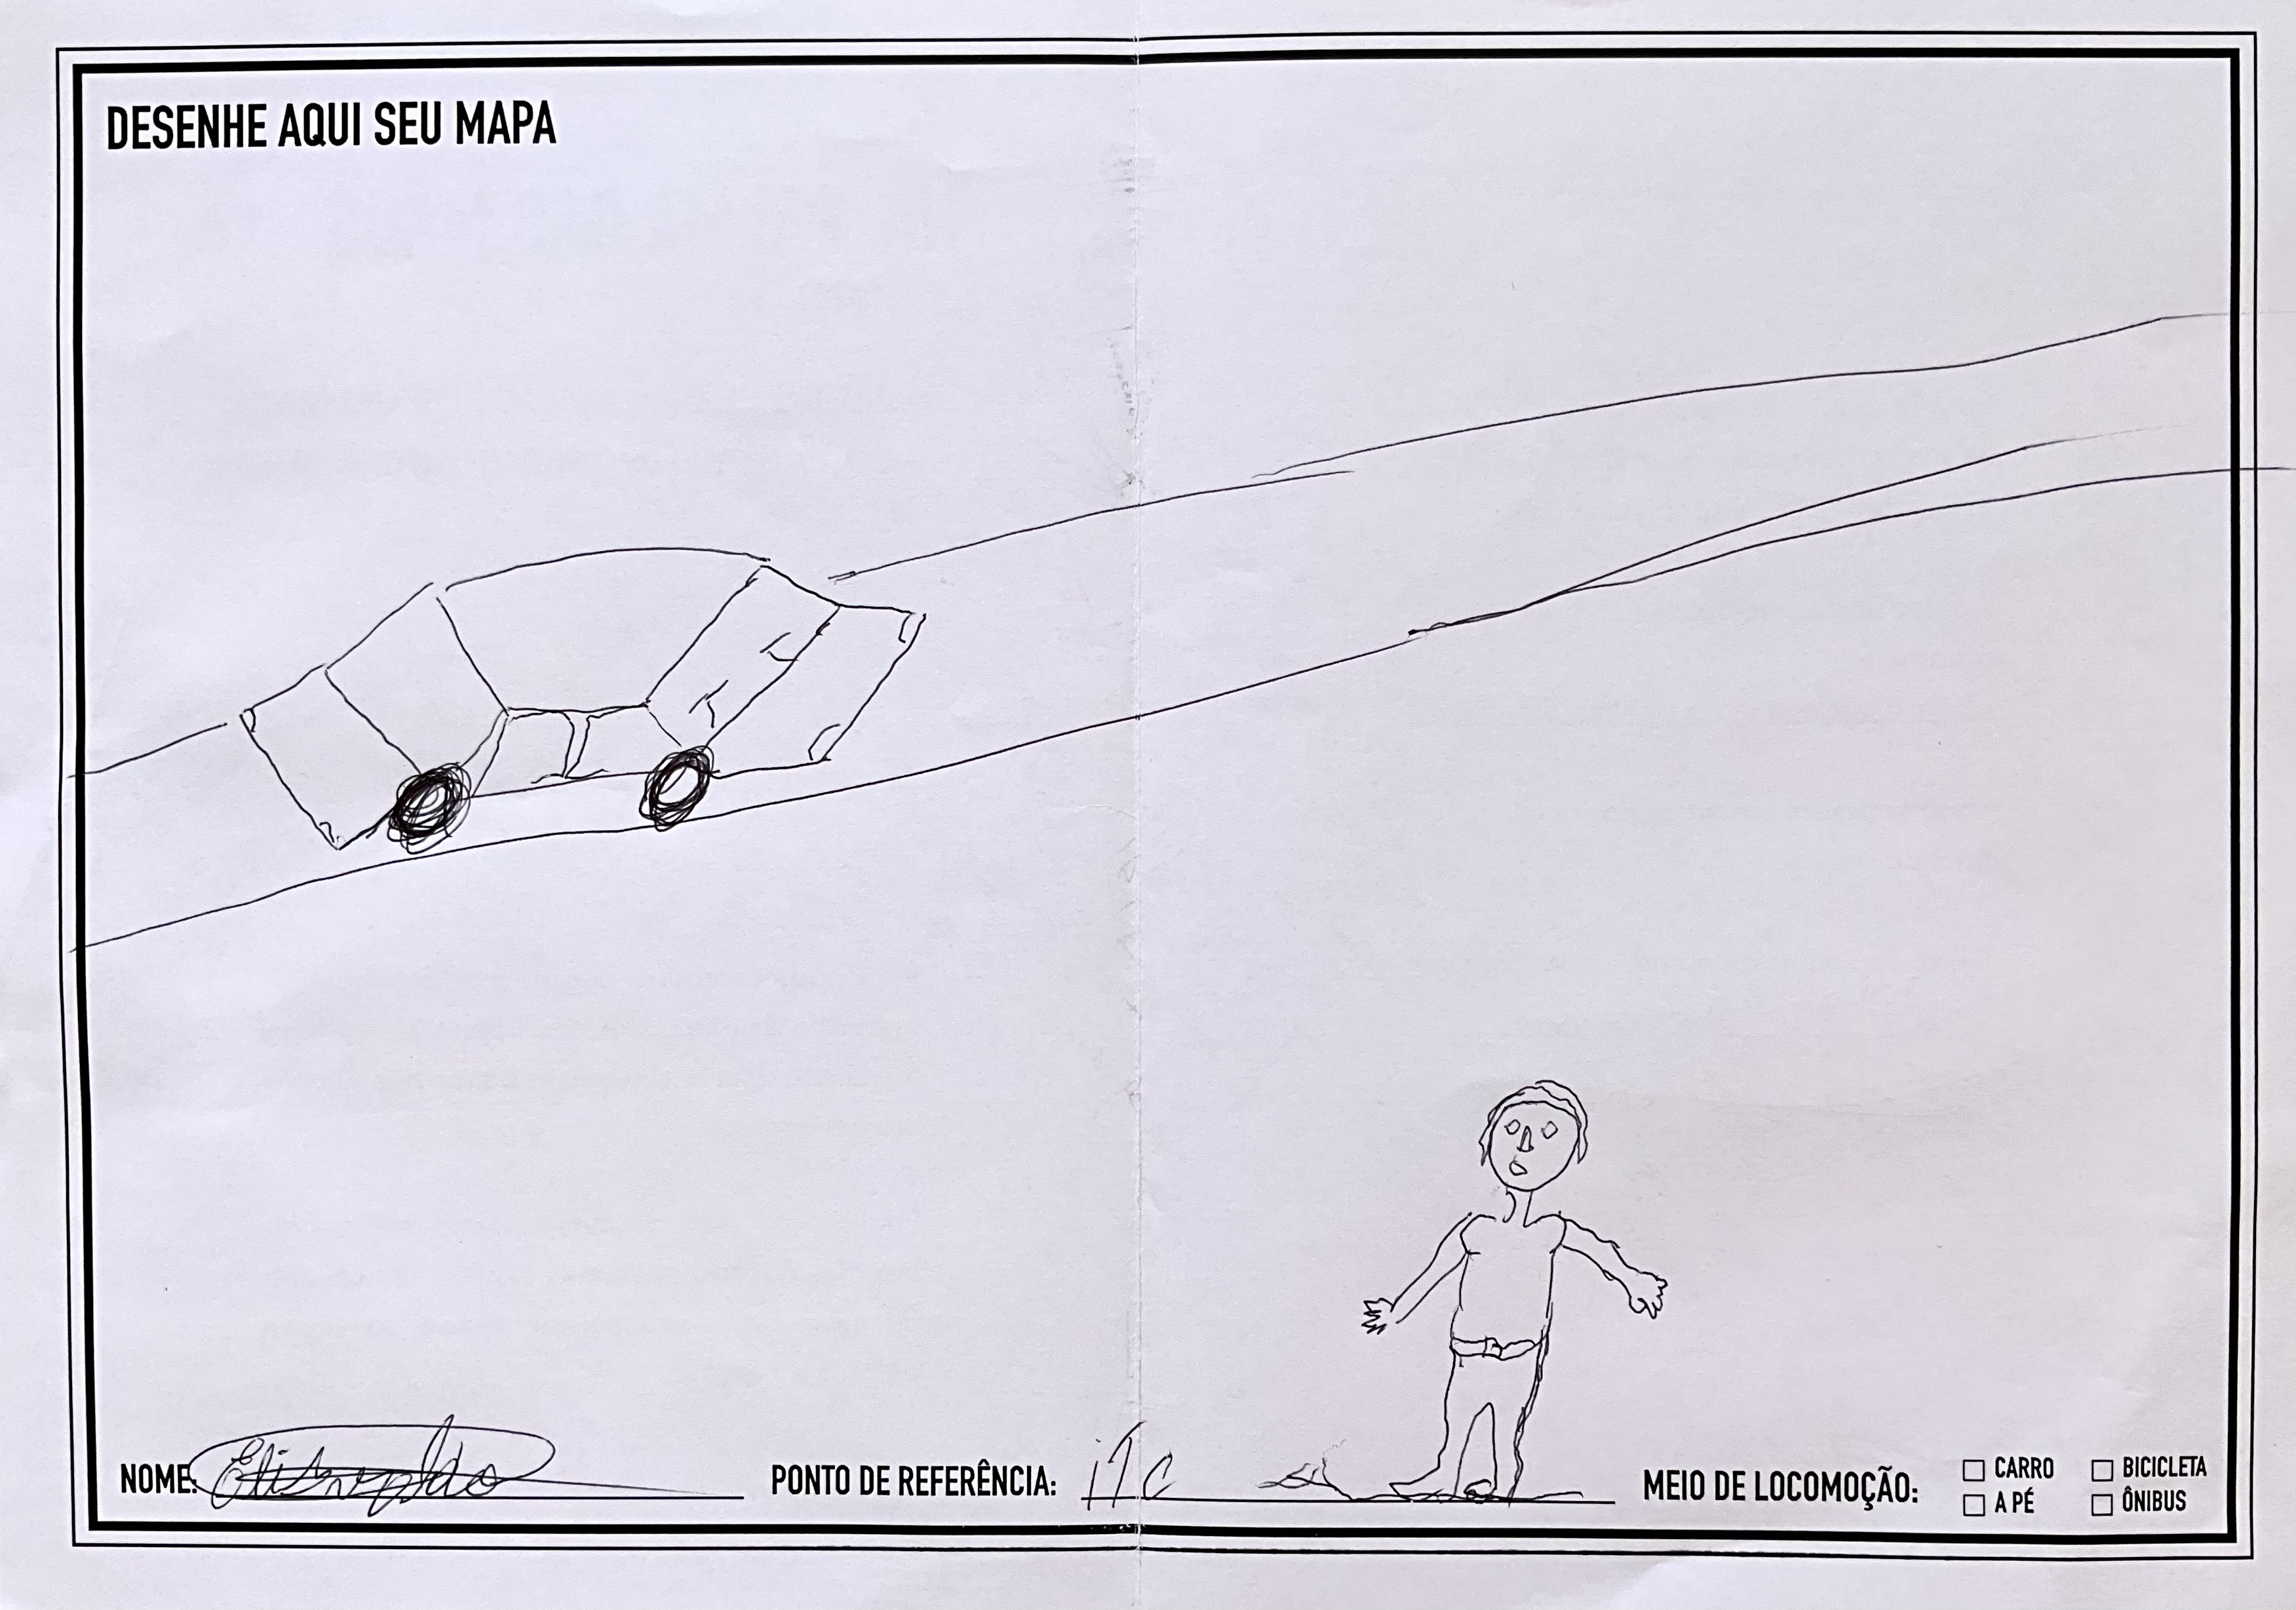 DESENHE AQUI SEU MAPA
NOME: PONTO DE REFERÊNCIA: MEIO DE LOCOMOÇÃO:
CARRO BICICLETA
A PÉ ÔNIBUS